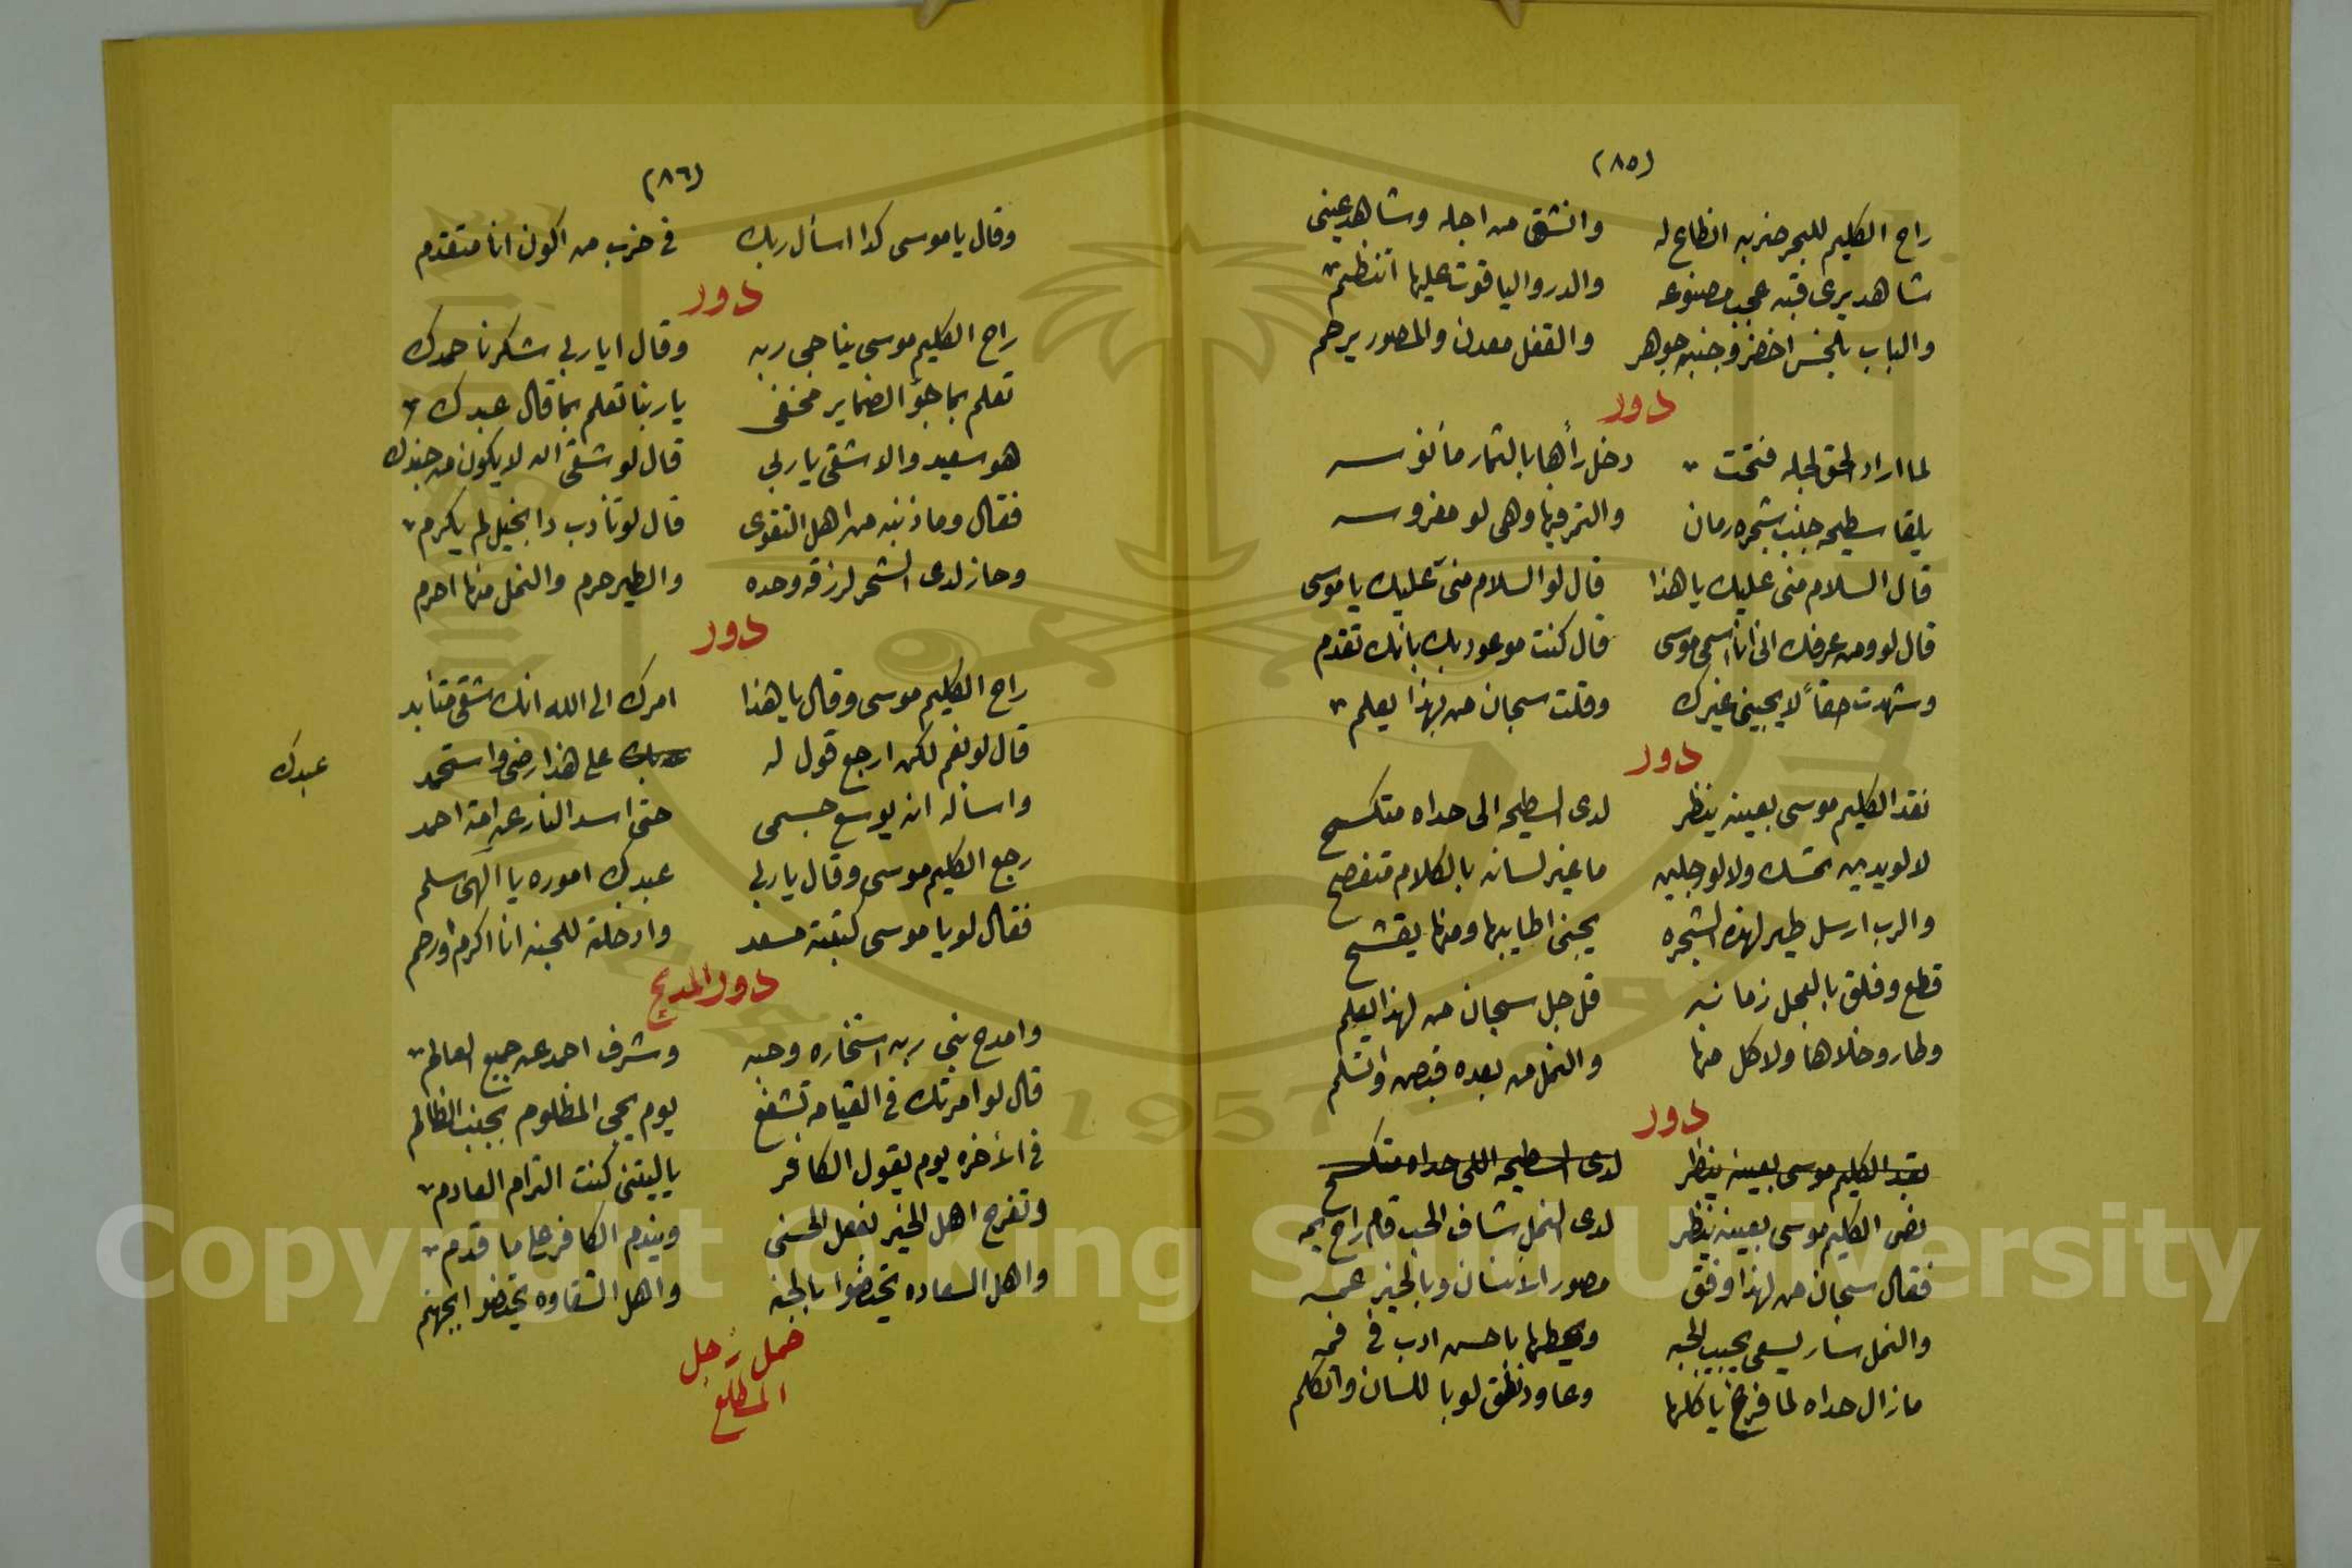 (٨٥)
راح الكليم للبحر ضربه انطاع له وانشق من اجله وشاهد عينى
شاهد يرى قبه عجب مصنوعه والدر والياقوت عليها اتنظم
والباب بلخش اخضر وجنبه جوهر والقفل معدن والمصور يرحم
دور
لما اراد الحق لجله فتحت دخل رأها بالثمار مأنوسه
يلقا سطيحه جنب شجره رمان والتمر فيها وهى لو مغروسه
قال السلام منى عليك يا هذا قال لو السلام منى عليك يا موسى
قال لو ومن عرفك انى انا اسمى موسى قال كنت موعود بك بانك تقدم
وشهدت حقاً لا يجينى غيرك وقلت سبحان من بهذا يعلم
دور
نقد الكليم موسى بعينه ينظر لدى السطيحه الى حداه متكسح
لا لو يدين تمسك ولا لو رجلين ما غير لسانه بالكلام متفصح
والرب ارسل طير لهذه الشجره يجنى اطايبها ومنها يقشح
قطع وفلق بالعجل زمانه قل جل سبحان من لهذا يعلم
وطار وخلاها ولا كل منها والنمل من بعده قبص واتسلم
دور
نقد الكليم موسى بعينه ينظر لدى السطيحه اللى حداه متكسح
نص الكليم موسى بعينه ينظر لدى النمل شاف الحب قام راح يمه
فقال سبحان من لهذا وفق مصور الانسان وبالخير عمه
والنمل سار يسعى يجيب الحبه ويحطها باحسن ادب فى فمه
مازال حداه لما فرغ ياكلها وعاود نطق لو باللسان واتكلم
(٨٦)
وقال يا موسى كدا اسأل ربك فى حزب من اكون انا متقدم
دور
راح الكليم موسى يناجى ربه وقال ايا ربى شكرنا حمدك
تعلم بما جؤ الضماير مخفى يا ربنا تعلم بما قال عبدك
هو سعيد والا شقى يا ربى قال لو شقى اله لا يكون من جندك
فقال وما ذنبه من اهل التقوى قال لو تأدب دا بخيل لم يكرم
وحاز لدى الشجر لرزقه وحده والطير حرم والنمل منها احرم
دور
راح الكليم موسى وقال يا هذا امرك الى الله انك شقى متأبد
قال لو نعم لكن ارجع قول له على هذا رضى واستحمد
عبدك
واسأله انه يوسع جسمى حتى اسد النار عن امة احمد
رجع الكليم موسى وقال يا ربى عبدك اموره يا الهى سلم
فقال لو يا موسى كتبته مسعد وادخلته للجنه انا اكرم وارحم
دور المديح
وامدح نبى ربه استخاره وحبه وشرف احمد عن جميع العالم
قال لو امرتك فى القيامه تشفع يوم يجى المظلوم بجنب الظالم
فى الأخره يوم يقول الكافر يا ليتنى كنت التراب العادم
وتفرح اهل الخير لفعل الحسنى ويندم الكافر على ما قدم
واهل السعاده يحتضوا بالجنه واهل الشقاوه يحتضوا ابجهنم
حمل زجل
المطلع
Copyright © King Saud University
1957